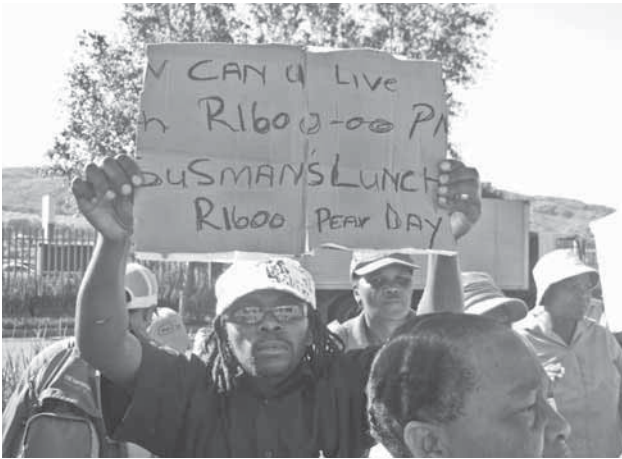 CAN U LIVE
R1600-00 PM
BUSMAN'S LUNCH
R1600 PEAR DAY